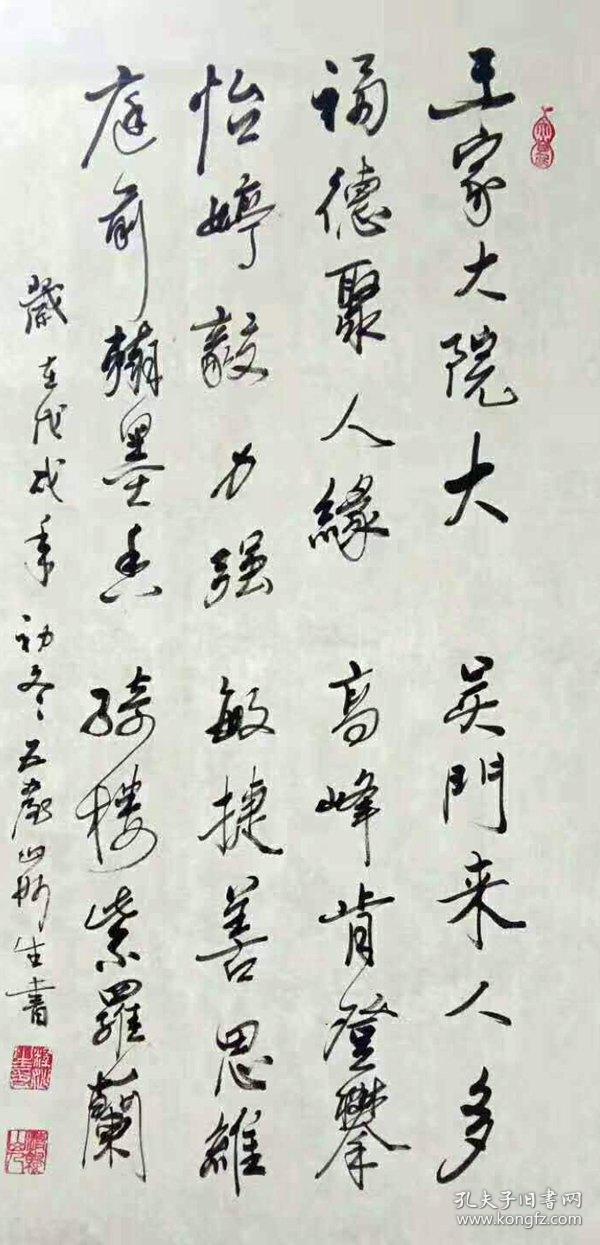 王家大院大 吴門来人多
福德聚人緣 高峰肯登攀
怡婷毅力强 敏捷善思維
庭前翰墨香 騎樓紫羅蘭
歲在戊戌年初冬五臺山 生書
孔夫子旧书网
www.kongfz.com